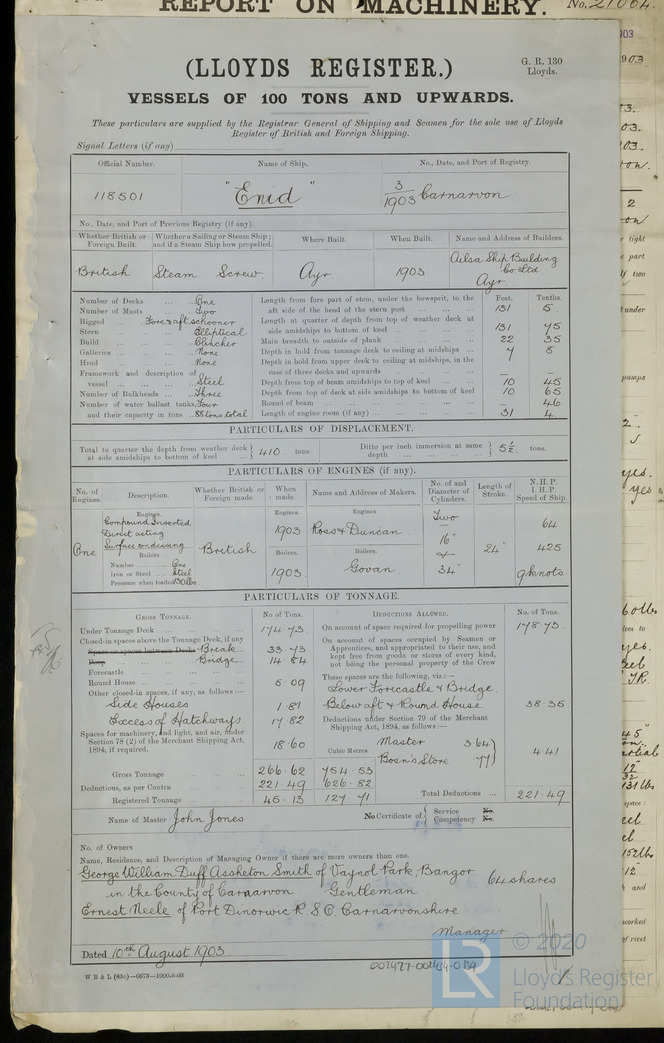 REPORT ON MACHINERY. No. 21064
(LLOYDS REGISTER.)
G. R. 130
Lloyds.
VESSELS OF 100 TONS AND UPWARDS.
These particulars are supplied by the Registrar General of Shipping and Seamen for the sole use of Lloyds
Register of British and Foreign Shipping.
Signal Letters (if any)
Official Number. Name of Ship. No., Date, and Port of Registry.
118501 "Enid" 3/1903 Carnarvon
No., Date, and Port of Previous Registry (if any).
Whether British or Foreign Built. Whether a Sailing or Steam Ship; and if a Steam Ship how propelled. Where Built. When Built. Name and Address of Builders.
British Steam Screw. Ayr. 1903 Ailsa Ship Building Co Ltd Ayr.
Number of Decks One
Number of Masts Two
Rigged Fore & aft schooner
Stern Elliptical
Build Clincher
Galleries None
Head None
Framework and description of
vessel Steel
Number of Bulkheads Three
Number of water ballast tanks, Four
and their capacity in tons 88 tons total
Feet. Tenths.
Length from fore part of stem, under the bowsprit, to the
aft side of the head of the stern post 131 5
Length at quarter of depth from top of weather deck at
side amidships to bottom of keel 131 75
Main breadth to outside of plank 22 35
Depth in hold from tonnage deck to ceiling at midships 9 8
Depth in hold from upper deck to ceiling at midships, in the
case of three decks and upwards – –
Depth from top of beam amidships to top of keel 10 45
Depth from top of deck at side amidships to bottom of keel 10 65
Round of beam – 46
Length of engine room (if any) 31 4
PARTICULARS OF DISPLACEMENT.
Total to quarter the depth from weather deck at side amidships to bottom of keel 410 tons. Ditto per inch immersion at same depth 5½ tons.
PARTICULARS OF ENGINES (if any).
No. of Engines. Description. Whether British or Foreign made. When made. Name and Address of Makers. No. of and Diameter of Cylinders. Length of Stroke. N.H.P. I.H.P. Speed of Ship.
Engines. Engines. Engines
Compound Inverted
Direct acting
Surface condensing
One British 1903 Ross & Duncan Two 16" & 34" 24" 64 425 9 knots
Boilers. Boilers. Boilers.
Number One
Iron or Steel Steel
Pressure when loaded 130 lbs
1903 Govan.
PARTICULARS OF TONNAGE.
GROSS TONNAGE. No of Tons. DEDUCTIONS ALLOWED. No. of Tons.
Under Tonnage Deck 174.73
Closed-in spaces above the Tonnage Deck, if any
Space or spaces between Decks Break 33.73
Poop Bridge 14.84
Forecastle
Round House 5.09
Other closed-in spaces, if any, as follows:—
Side Houses 1.81
Excess of Hatchways 17.82
Spaces for machinery, and light, and air, under
Section 78 (2) of the Merchant Shipping Act,
1894, if required. 18.60
Gross Tonnage 266.62
Deductions, as per Contra 221.49
Registered Tonnage 45.13
On account of space required for propelling power 178.73
On account of spaces occupied by Seamen or
Apprentices, and appropriated to their use, and
kept free from goods or stores of every kind,
not being the personal property of the Crew
These spaces are the following, viz.:—
Lower Forecastle & Bridge.
Below aft & Round House 38.35
Deductions under Section 79 of the Merchant
Shipping Act, 1894, as follows:—
Master 3.64
Bosn's Store .77
4.41
Cubic Metres
754.53
626.82
127.71
Total Deductions 221.49
Name of Master John Jones No Certificate of Service No. Competency No.
No. of Owners
Name, Residence, and Description of Managing Owner if there are more owners than one.
George William Duff Assheton Smith of Vaynol Park, Bangor
in the County of Carnarvon Gentleman 64 shares
Ernest Neele of Port Dinorwic R.S.O. Carnarvonshire
Manager
Dated 10th August 1903.
W B & L (83o)—6673—1000-6-03
002427-002434-0139
LR
© 2020
Lloyd's Register
Foundation